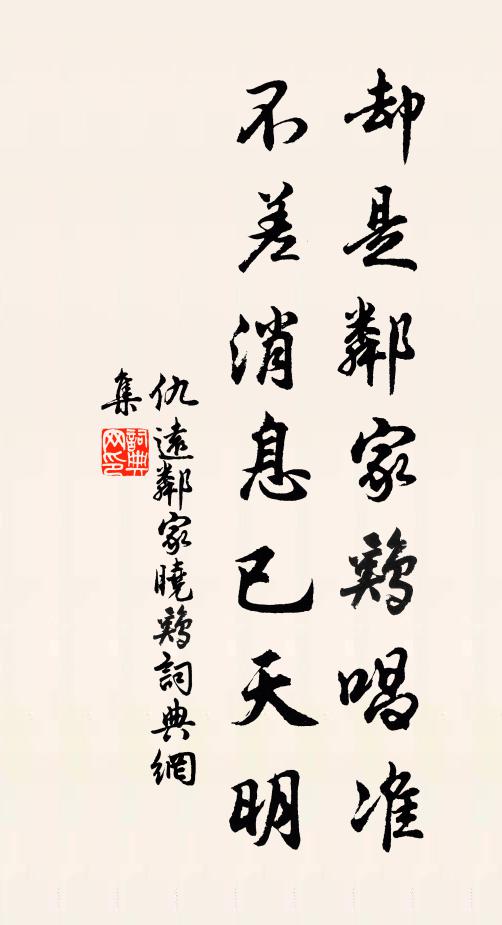 却是鄰家鷄唱准
不差消息已天明
仇遠鄰家曉鷄詞典網
集
詞典網印